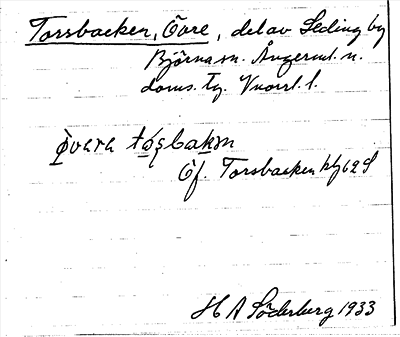 Torsbacken, Övre, del av Seding by
Björna sn. Ångerml. n.
doms. tg. Vnorrl. l.
ò̱vara tó̱ʂbakɐn
Öf. Torsbacken kbg 62 S
H A Söderberg 1933